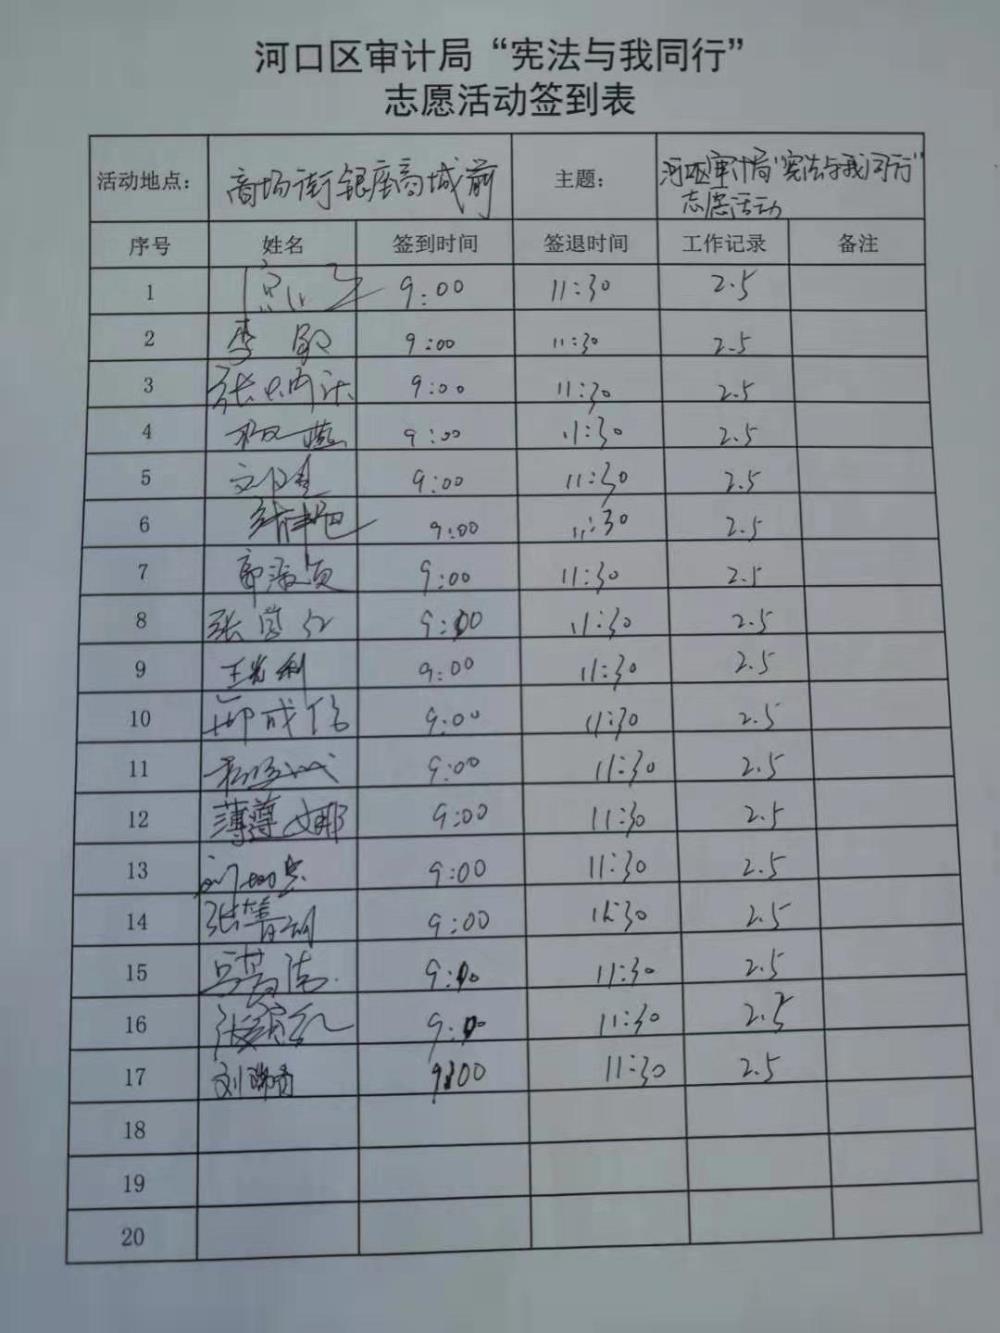 河口区审计局“宪法与我同行”
志愿活动签到表
活动地点： 商场街银座商城前 主题： 河口区审计局“宪法与我同行”
志愿活动
序号 姓名 签到时间 签退时间 工作记录 备注
1 9:00 11:30 2.5
2 李敏 9:00 11:30 2.5
3 9:00 11:30 2.5
4 9:00 11:30 2.5
5 9:00 11:30 2.5
6 9:00 11:30 2.5
7 9:00 11:30 2.5
8 9:00 11:30 2.5
9 王光利 9:00 11:30 2.5
10 9:00 11:30 2.5
11 9:00 11:30 2.5
12 薄尊娜 9:00 11:30 2.5
13 9:00 11:30 2.5
14 9:00 11:30 2.5
15 9:00 11:30 2.5
16 9:00 11:30 2.5
17 9:00 11:30 2.5
18
19
20